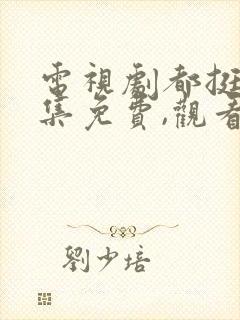 電視劇都挺
集免費,觀看
劉少培